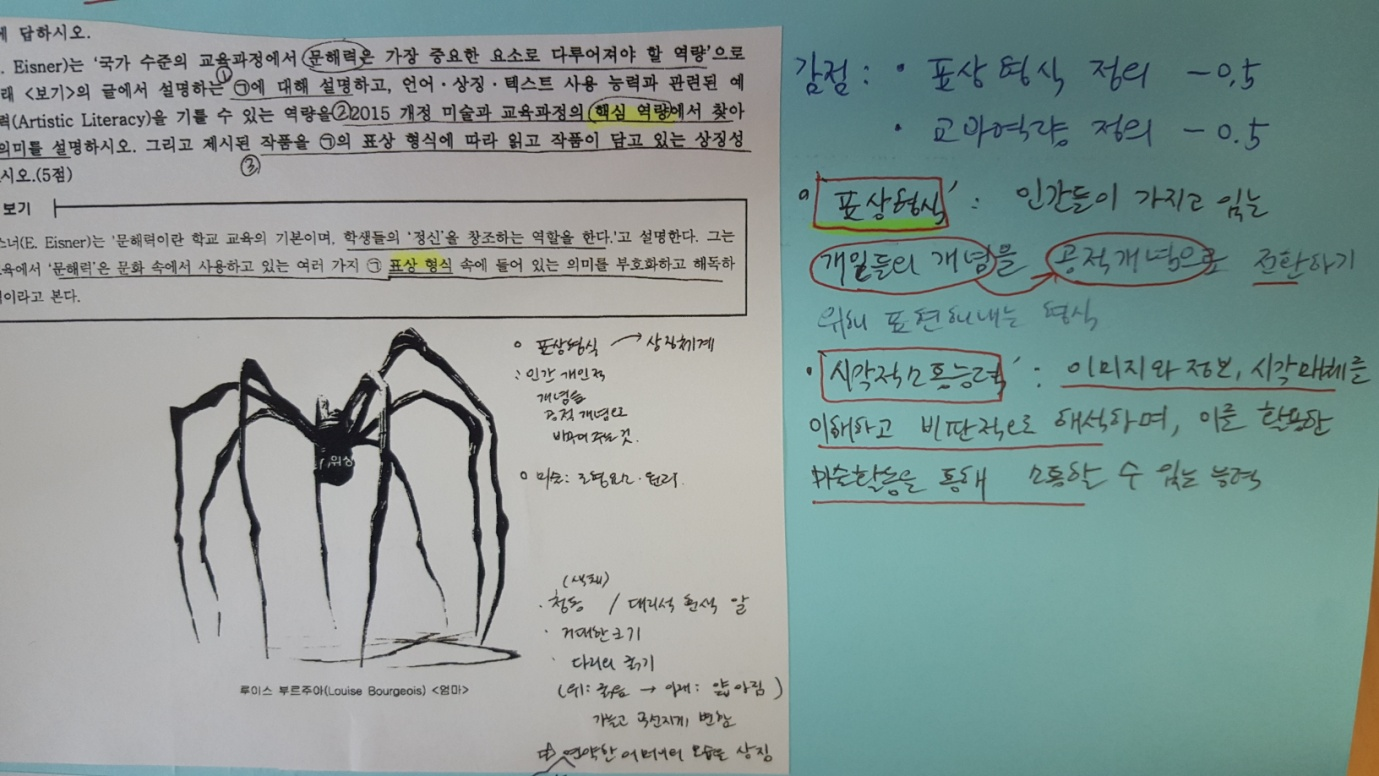 에 답하시오.
. Eisner)는 ‘국가 수준의 교육과정에서 문해력은 가장 중요한 요소로 다루어져야 할 역량’으로
래 <보기>의 글에서 설명하는 ㉠에 대해 설명하고, 언어·상징·텍스트 사용 능력과 관련된 예
력(Artistic Literacy)을 기틀 수 있는 역량을 ② 2015 개정 미술과 교육과정의 핵심 역량에서 찾아
의미를 설명하시오. 그리고 제시된 작품을 ㉠의 표상 형식에 따라 읽고 작품이 담고 있는 상징성
시오.(5점)
①
③
보기
스너(E. Eisner)는 ‘문해력이란 학교 교육의 기본이며, 학생들의 ‘정신’을 창조하는 역할을 한다.’고 설명한다. 그는
육에서 ‘문해력’은 문화 속에서 사용하고 있는 여러 가지 ㉠ 표상 형식 속에 들어 있는 의미를 부호화하고 해독하
이라고 본다.
표상형식 → 상징체계
: 인간 개인적
개념을
공적 개념으로
바꾸어 주는 것.
미술: 조형요소·원리.
위상
(색채)
· 청동 / 대리석 흰색 알
· 거대한 크기
· 다리의 굵기
(위: 굵음 → 아래: 얇아짐)
가늘고 곡선지게 변함
연약한 어머니의 모습을 상징
루이스 부르주아(Louise Bourgeois) <엄마>
감점 : · 표상형식 정의 -0.5
· 교과역량 정의 -0.5
‘표상형식’ : 인간들이 가지고 있는
개인들의 개념을 공적개념으로 전환하기
위해 표현해내는 형식
· ‘시각적소통능력’ : 이미지와 정보, 시각매체를
이해하고 비판적으로 해석하며, 이를 활용한
미술활동을 통해 소통할 수 있는 능력